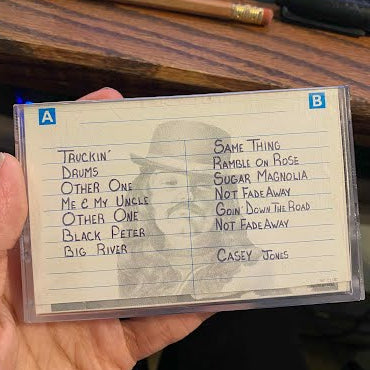 A
B
TRUCKIN'
DRUMS
OTHER ONE
ME & MY UNCLE
OTHER ONE
BLACK PETER
BIG RIVER
SAME THING
RAMBLE ON ROSE
SUGAR MAGNOLIA
NOT FADE AWAY
GOIN' DOWN THE ROAD
NOT FADE AWAY
CASEY JONES